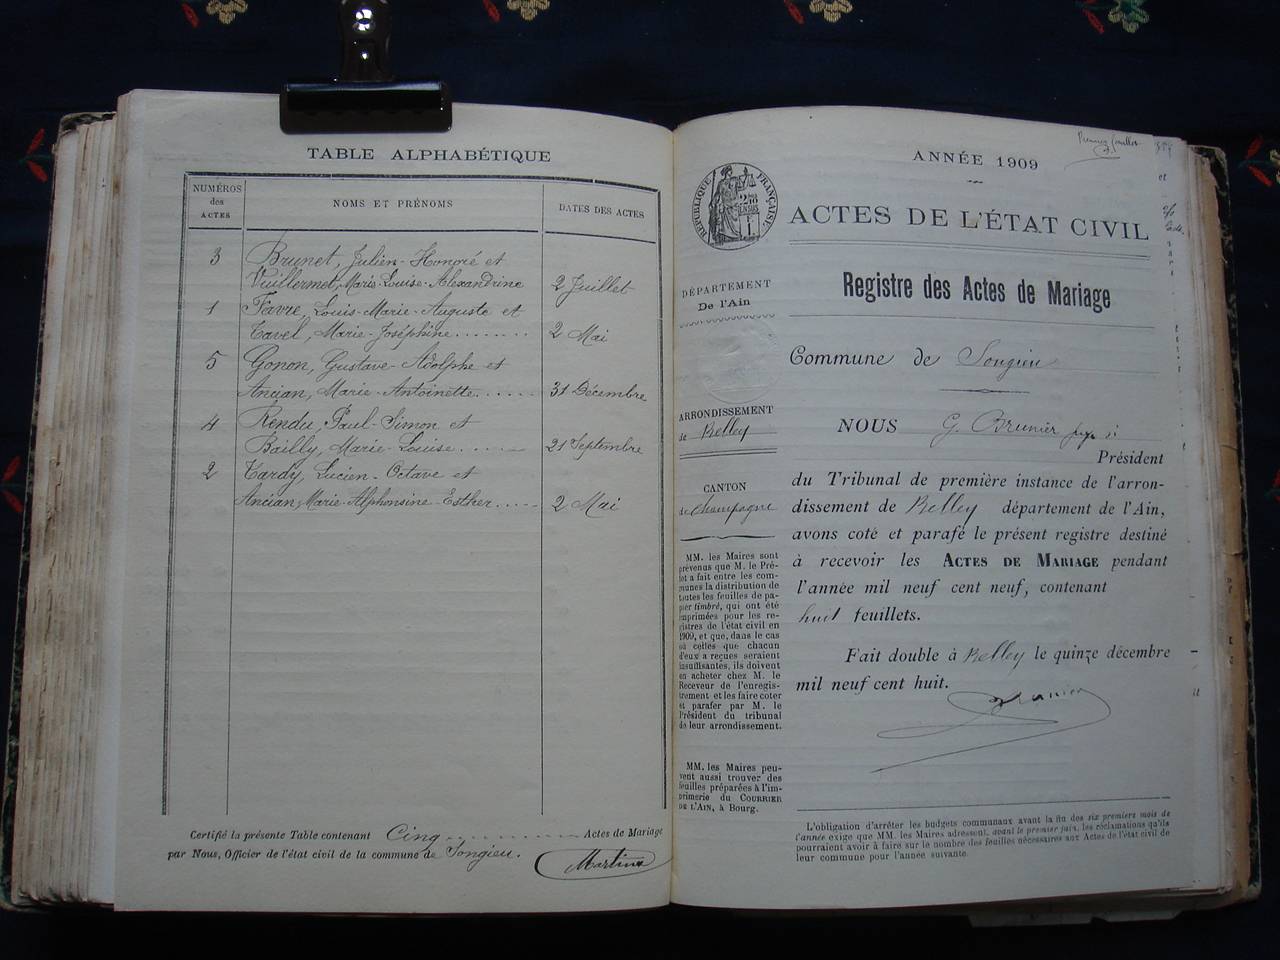 TABLE ALPHABÉTIQUE
NUMÉROS
des
ACTES
NOMS ET PRÉNOMS
DATES DES ACTES
3 Brunet, Julien-Honoré et
Vuillermet, Marie-Louise-Alexandrine 2 Juillet
1 Favre, Louis-Marie-Auguste et
Cavel, Marie-Joséphine........ 2 Mai
5 Gonon, Gustave Adolphe et
Ancian, Marie-Antoinette...... 31 Décembre
4 Rendu, Paul-Simon et
Bailly, Marie-Louise....... 21 Septembre
2 Tardy, Lucien-Octave et
Ancian, Marie-Alphonsine-Esther..... 2 Mai
Certifié la présente Table contenant Cinq Actes de Mariage
par Nous, Officier de l'état civil de la commune de Songieu.
Martine
ANNÉE 1909
RÉPUBLIQUE FRANÇAISE
ACTES DE L'ÉTAT CIVIL
DÉPARTEMENT
De l'Ain
Registre des Actes de Mariage
Commune de Songieu
ARRONDISSEMENT
de Belley
CANTON
de Champagne
MM. les Maires sont
prévenus que M. le Pré-
fet a fait entre les com-
munes la distribution de
toutes les feuilles de pa-
pier timbré, qui ont été
imprimées pour les re-
gistres de l'état civil en
1909, et que, dans le cas
où celles que chacun
d'eux a reçues seraient
insuffisantes, ils doivent
en acheter chez M. le
Receveur de l'enregis-
trement et les faire coter
et parafer par M. le
Président du tribunal
de leur arrondissement.
MM. les Maires peu-
vent aussi trouver des
feuilles préparées à l'im-
primerie du COURRIER
DE L'AIN, à Bourg.
NOUS G. Brunier
Président
du Tribunal de première instance de l'arron-
dissement de Belley département de l'Ain,
avons coté et parafé le présent registre destiné
à recevoir les ACTES DE MARIAGE pendant
l'année mil neuf cent neuf, contenant
huit feuillets.
Fait double à Belley le quinze décembre
mil neuf cent huit.
Brunier
L'obligation d'arrêter les budgets communaux avant la fin des six premiers mois de
l'année exige que MM. les Maires adressent, avant le premier juin, les réclamations qu'ils
pourraient avoir à faire sur le nombre des feuilles nécessaires aux Actes de l'état civil de
leur commune pour l'année suivante.